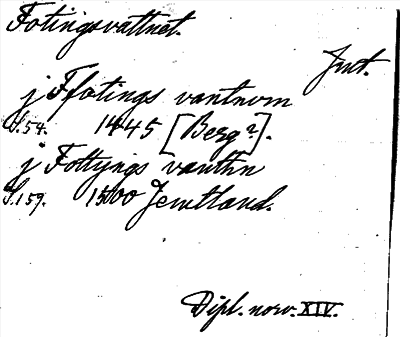 Fotingsvattnet.
Jmt.
j Ffotings vantnom
S. 54. 1445 [Berg?].
j Fottyngs vanthn
S. 159. 1500 Jemtland.
Dipl. norv. XIV.